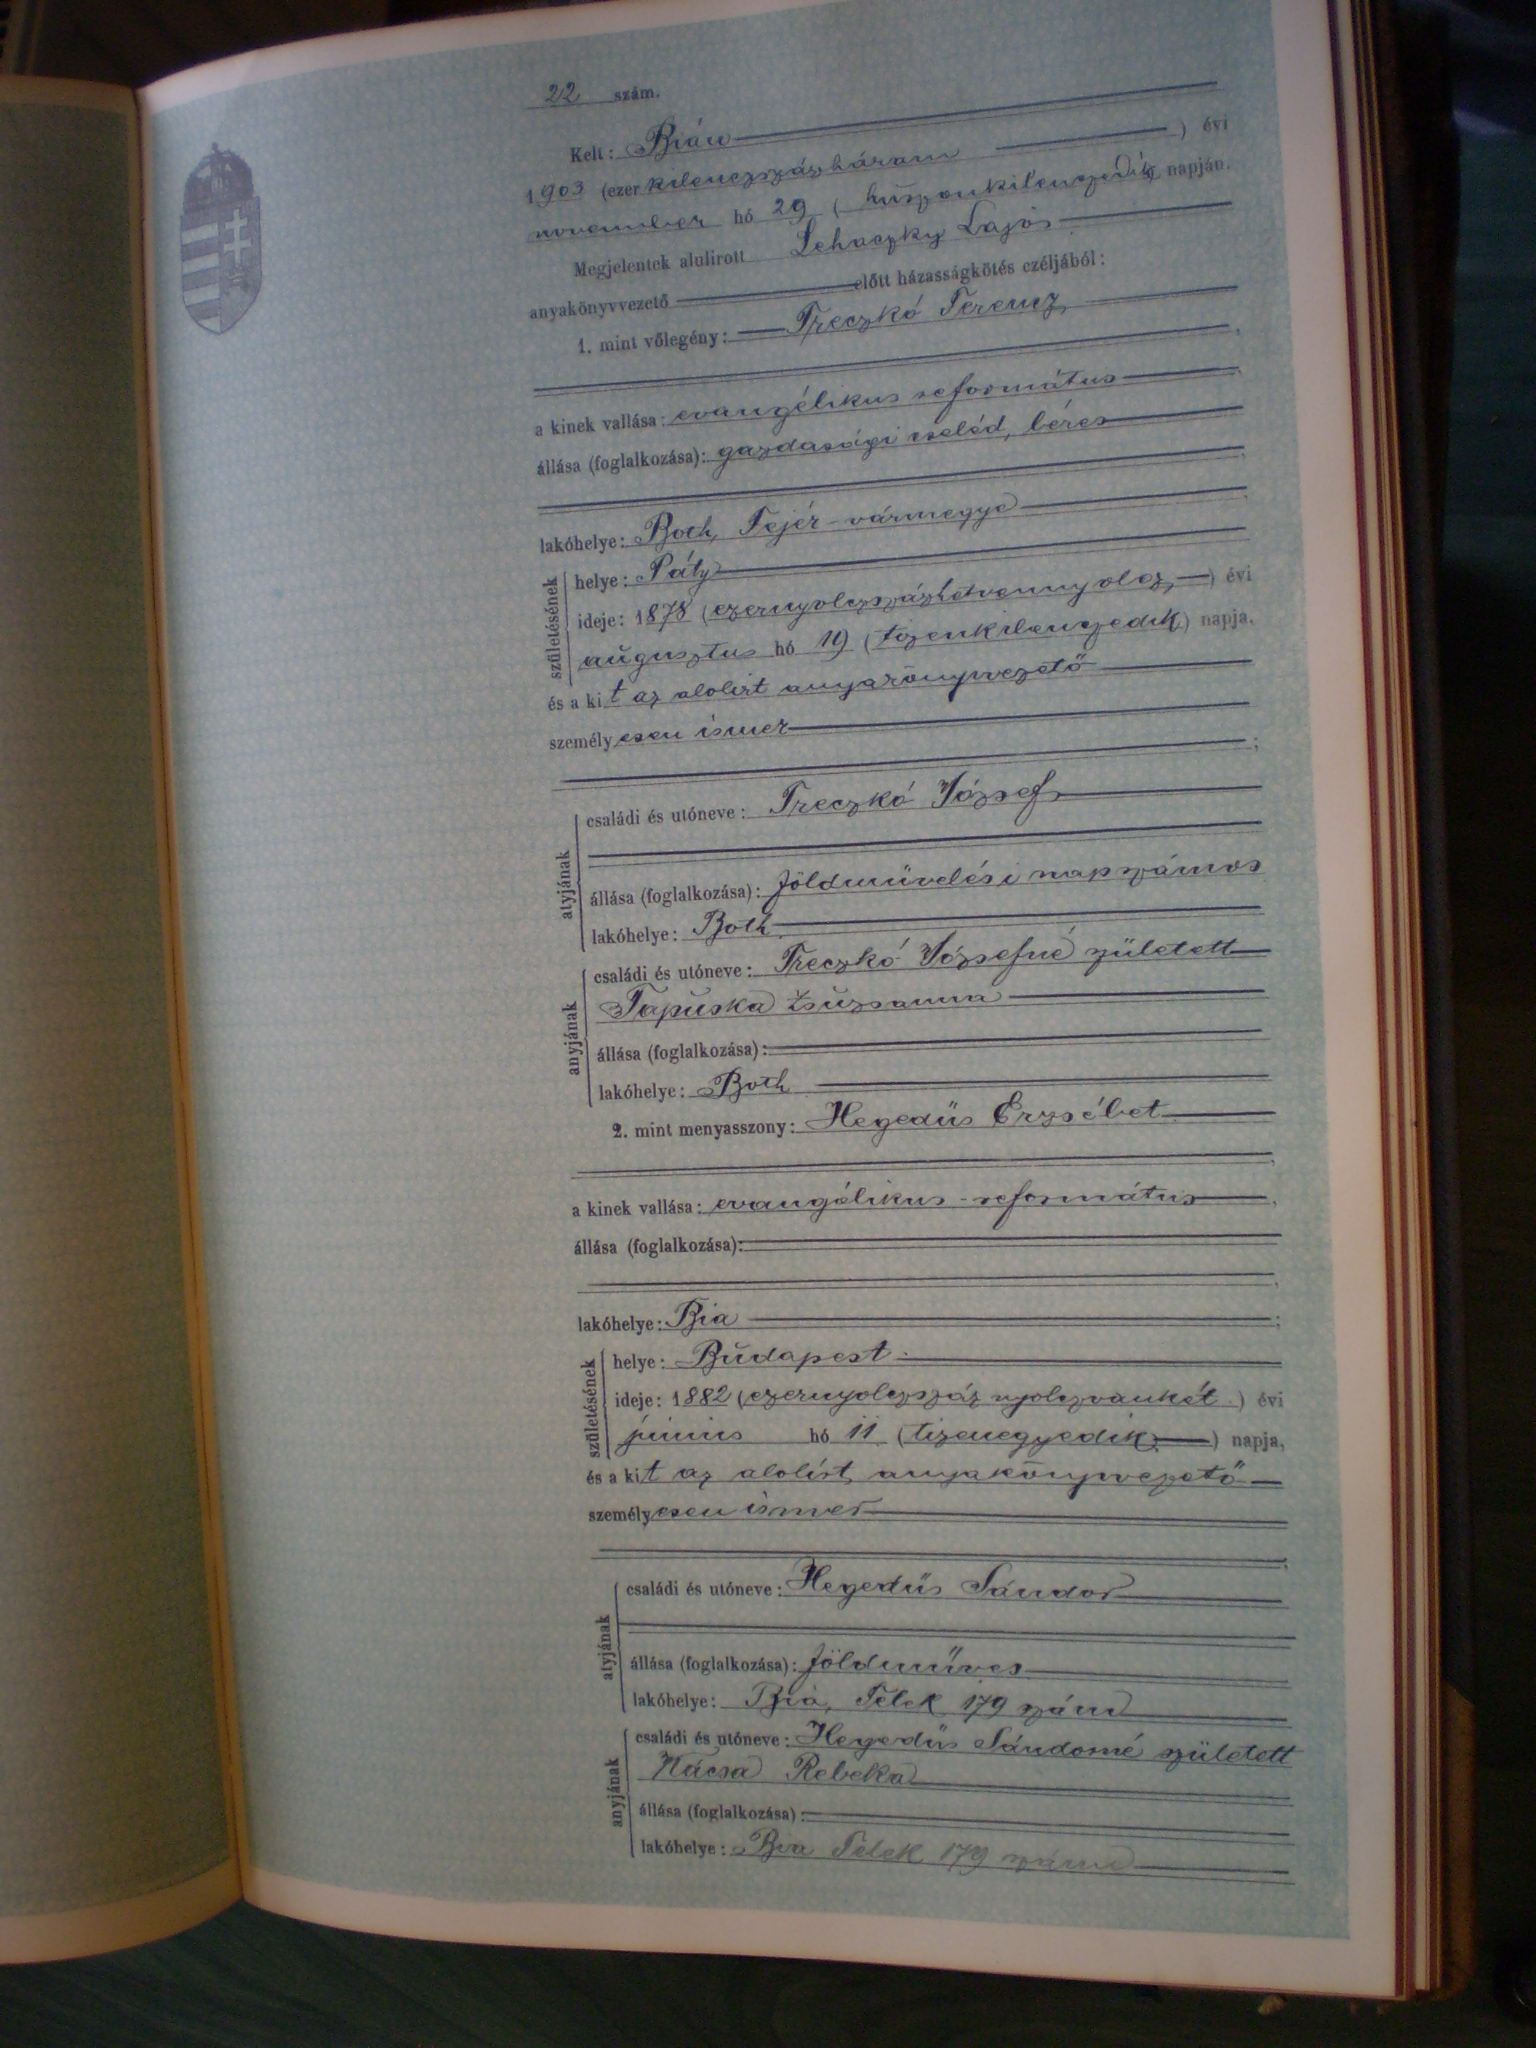 22 szám.
Kelt: Bián
1903 (ezer kilenczszázhárom) évi
november hó 29 (huszonkilenczedik) napján.
Megjelentek alulirott Lehaczky Lajos
anyakönyvvezető előtt házasságkötés czéljából:
1. mint vőlegény: Treczkó Ferencz,
a kinek vallása: evangélikus református,
állása (foglalkozása): gazdasági cseléd, béres,
lakóhelye: Both, Fejér-vármegye,
születésének
helye: Páty
ideje: 1878 (ezernyolczszázhetvennyolcz) évi
augusztus hó 19 (tizenkilenczedik) napja,
és a kit az alolirt anyakönyvvezető
személyesen ismer;
atyjának
családi és utóneve: Treczkó József
állása (foglalkozása): földmüvelési napszámos
lakóhelye: Both
anyjának
családi és utóneve: Treczkó Józsefné született
Tapuska Zsuzsanna
állása (foglalkozása):
lakóhelye: Both
2. mint menyasszony: Hegedüs Erzsébet,
a kinek vallása: evangélikus-református,
állása (foglalkozása):,
lakóhelye: Bia;
születésének
helye: Budapest
ideje: 1882 (ezernyolczszáz nyolczvankét) évi
június hó 11 (tizenegyedik) napja,
és a kit az alolírt anyakönyvvezető
személyesen ismer;
atyjának
családi és utóneve: Hegedüs Sándor
állása (foglalkozása): földműves
lakóhelye: Bia, Telek 179 szám
anyjának
családi és utóneve: Hegedüs Sándorné született
Kácsa Rebeka
állása (foglalkozása):
lakóhelye: Bia Telek 179 szám